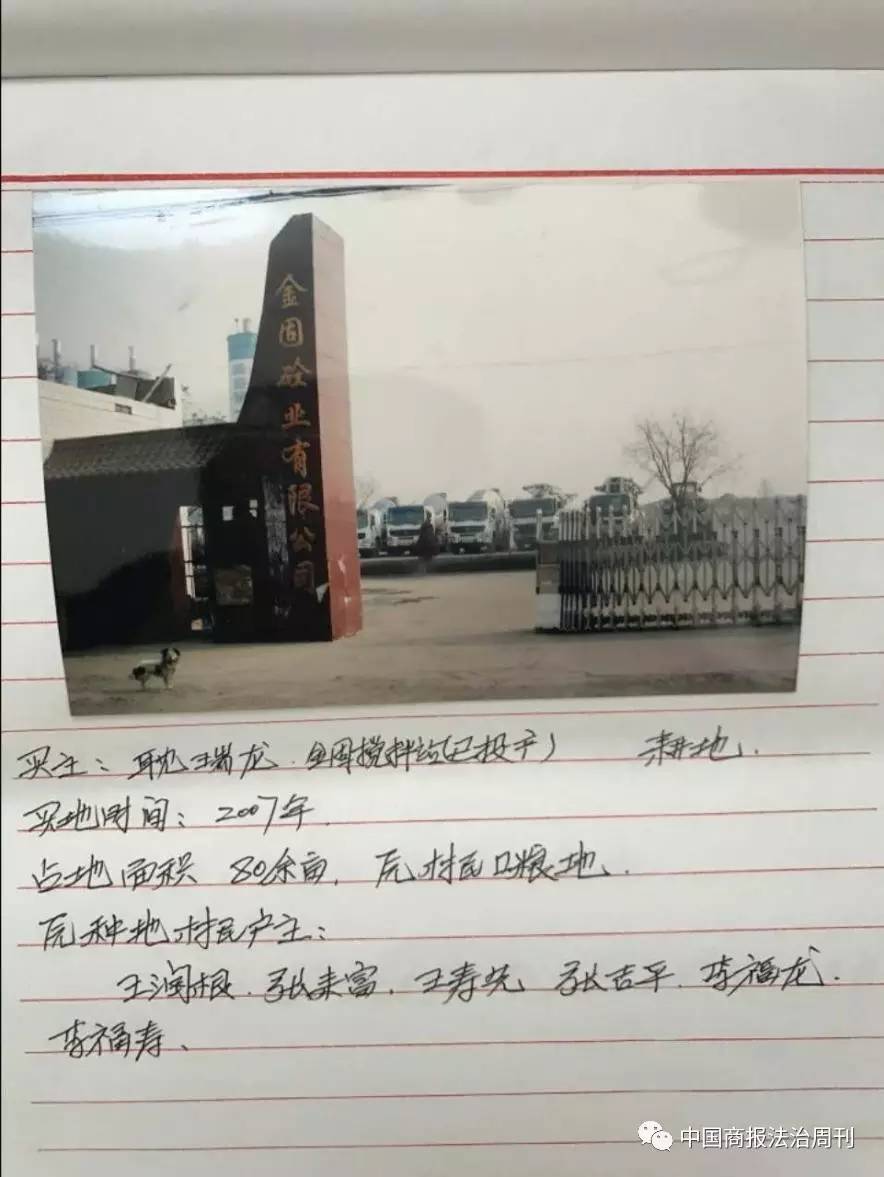 金固砼业有限公司
买主：耿瑞龙 金固搅拌站(已投产) 耕地.
买地时间：2007年.
占地面积 80余亩, 原村民口粮地.
原种地村民户主：
王润根. 张来富. 王寿先 张吉平. 李福龙.
李福寿、
中国商报法治周刊